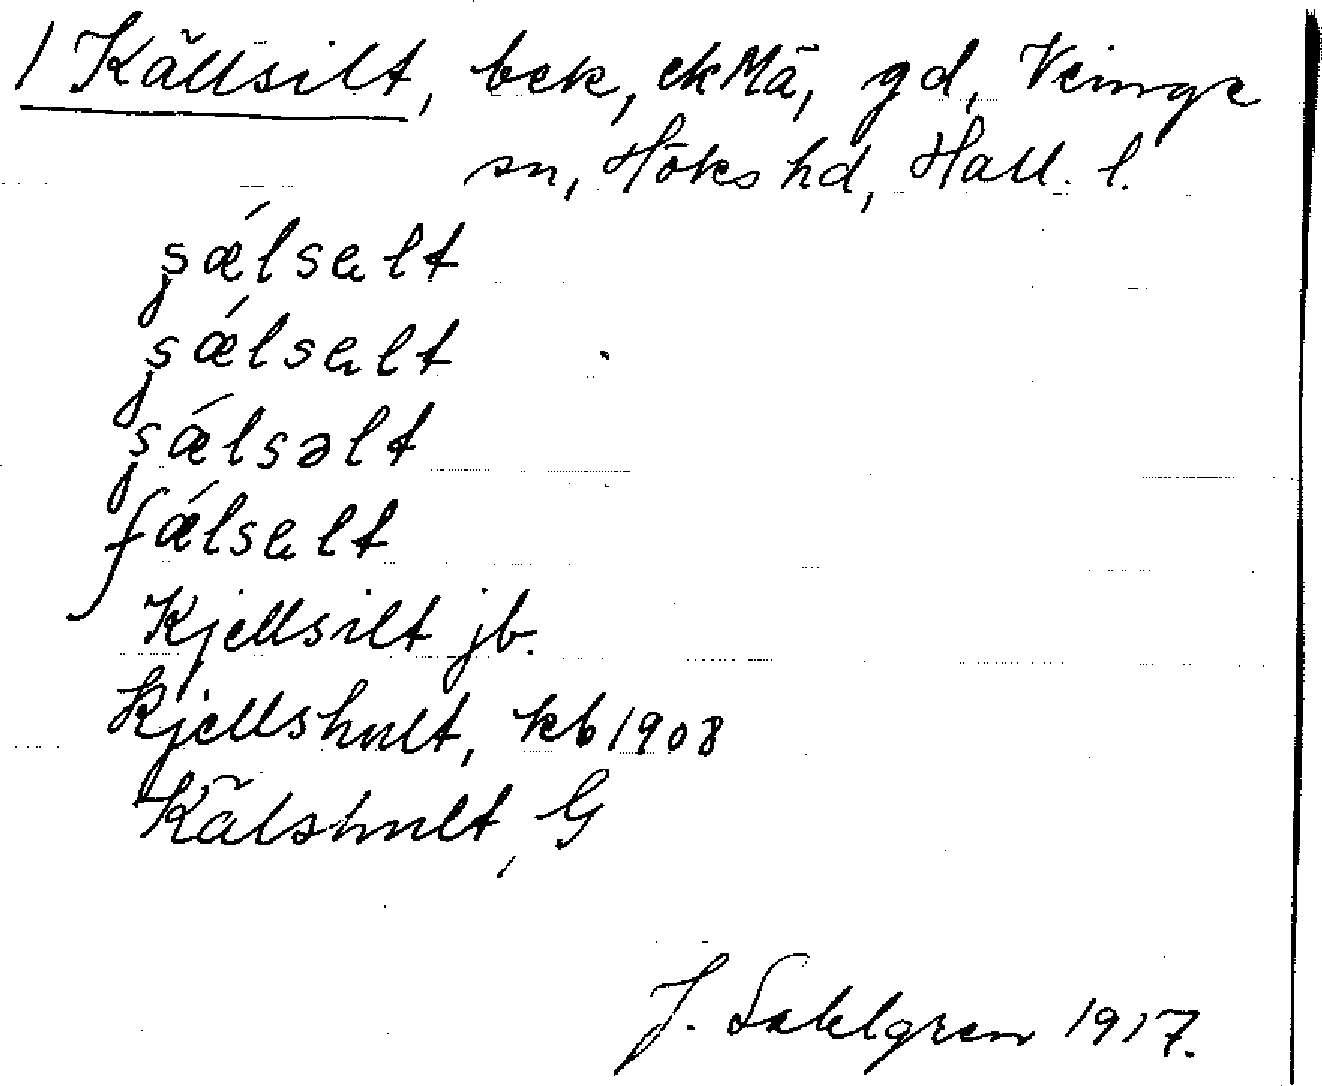 1 Källsilt, bek, ek Mā, gd, Veinge
sn, Höks hd, Hall. l.
şǽlsalt
şǽlsalt
şǽlsəlt
fǽlsalt
Kjellsilt jb.
Kjellshult, kb 1908
Kälshult, G
J. Sahlgren 1917.